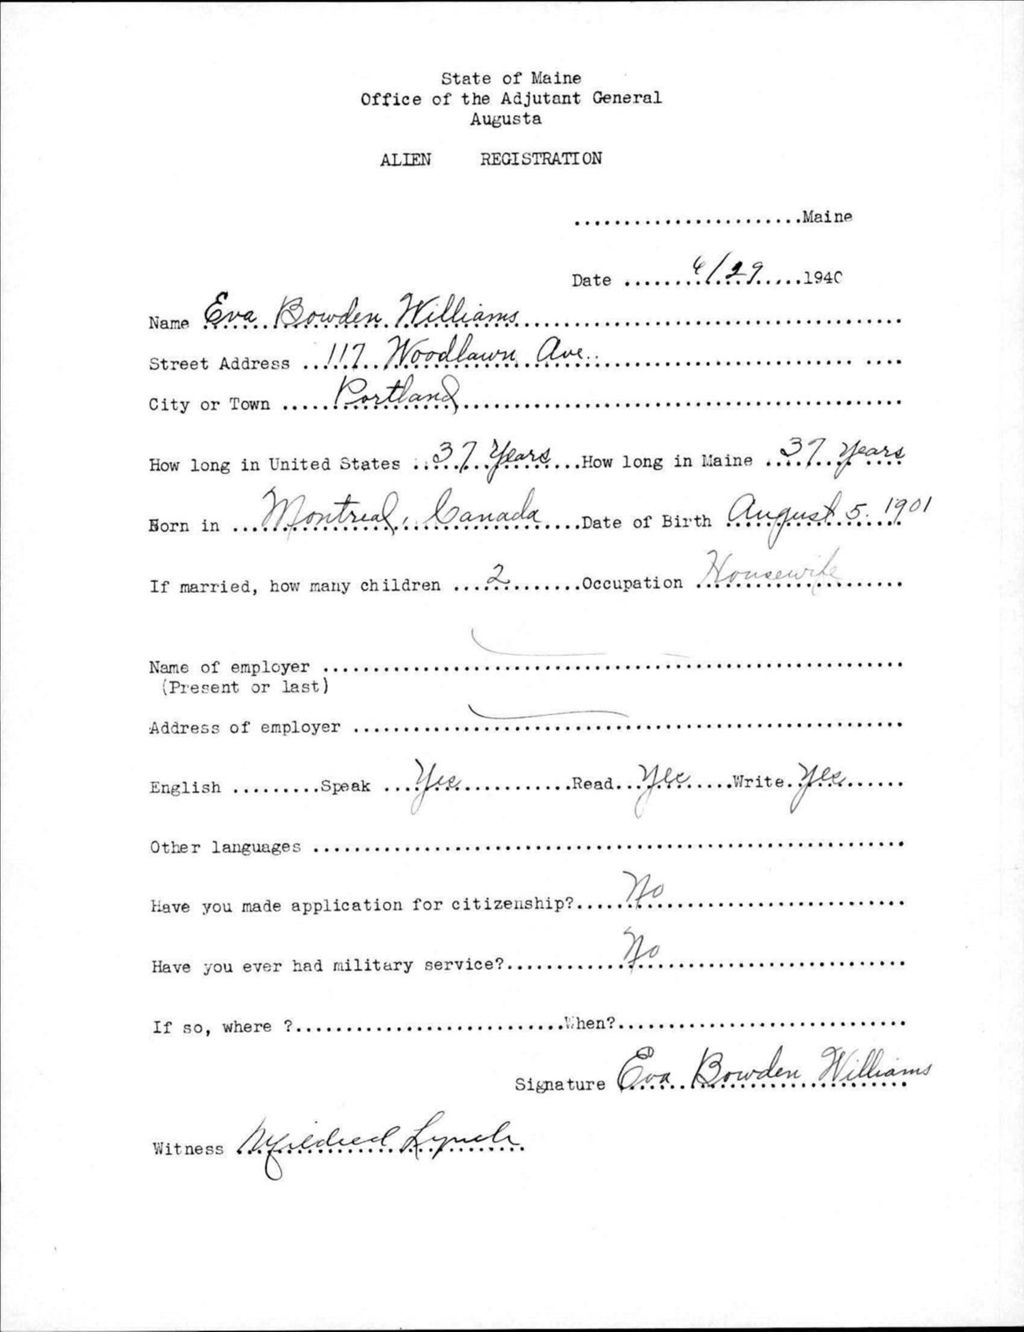 State of Maine
Office of the Adjutant General
Augusta
ALIEN REGISTRATION
.......................Maine
Date ........6/29.....1940
Name Eva Bowden Williams
Street Address ..117 Woodlawn Ave.
City or Town .....Portland
How long in United States ..37 Years...How long in Maine ..37 Years
Born in ...Montreal, Canada....Date of Birth August 5. 1901
If married, how many children ...2........Occupation Housewife
Name of employer
(Present or last)
Address of employer
English .........Speak ...Yes............Read...Yes.....Write.Yes
Other languages
Have you made application for citizenship?.....No
Have you ever had military service?............No
If so, where ?...........................When?
Signature Eva Bowden Williams
Witness Mildred Lynch